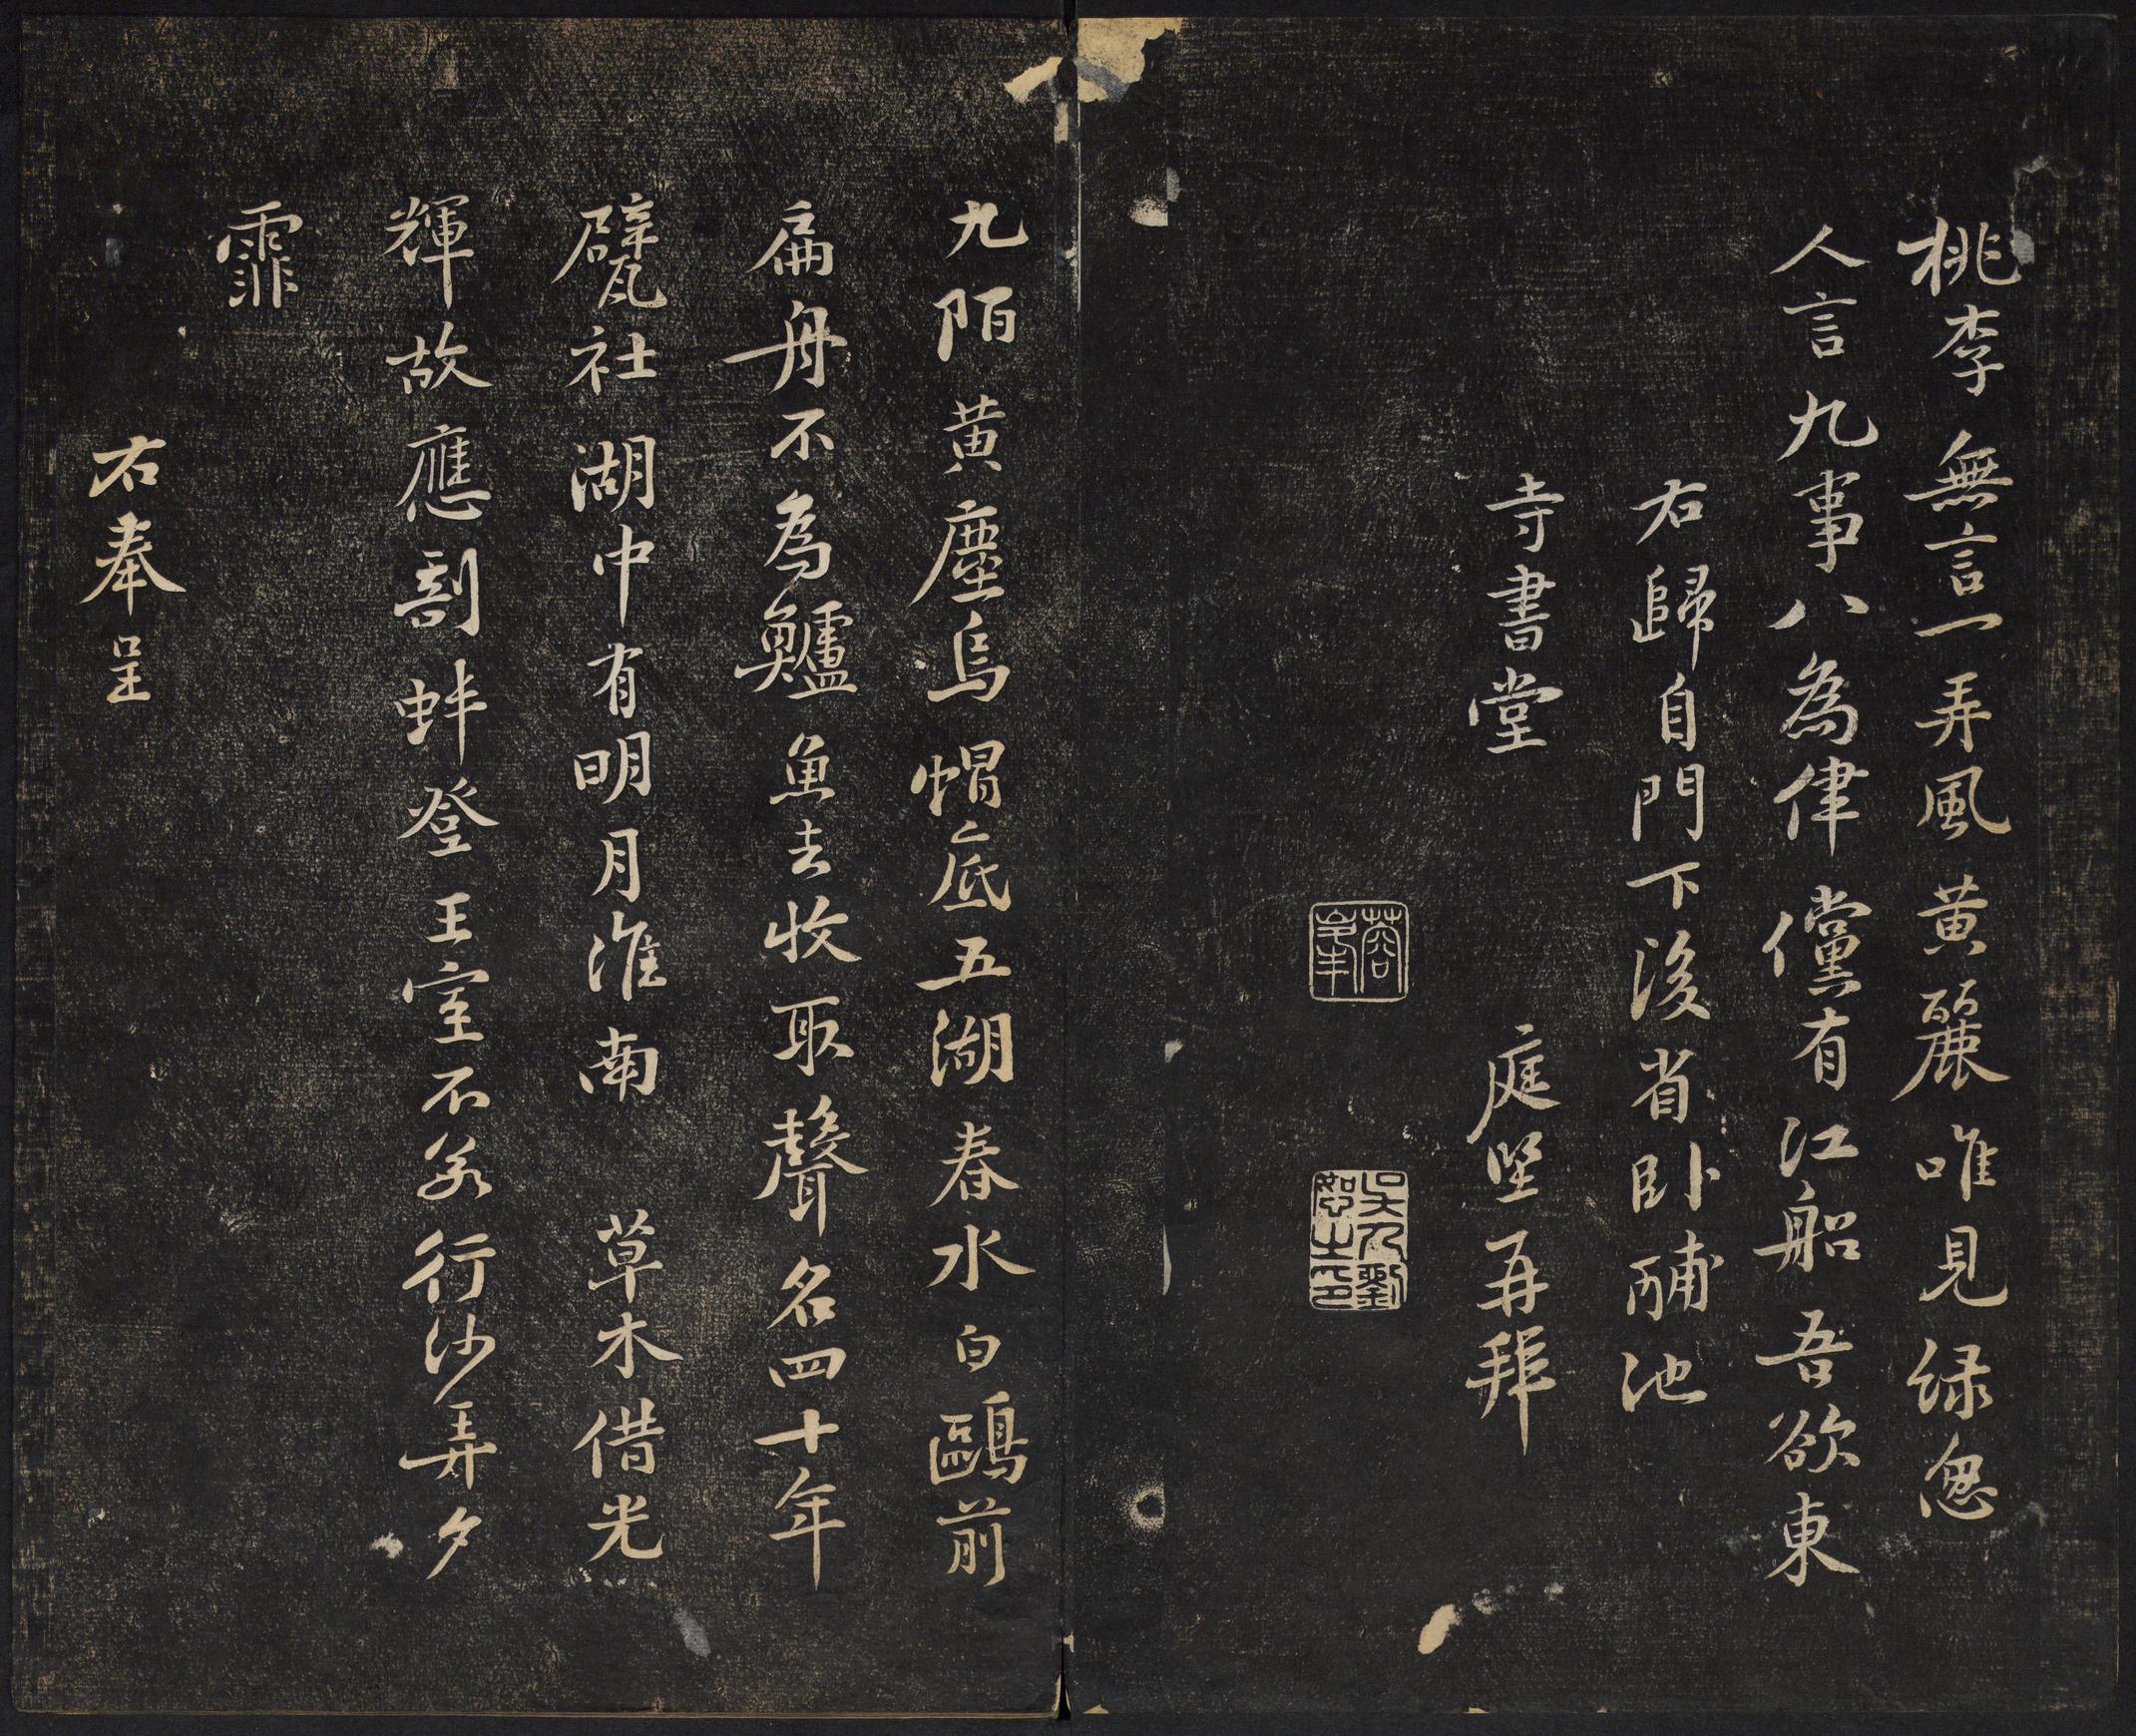 桃李無言一弄風黄麗唯見緑怱
人言九事八為律儻有江船吾欲東
右歸自門下後省卧酺池
寺書堂 庭坚再拜
蓉峯
劉恕之印
九陌黄塵烏帽底五湖春水白鷗前
扁舟不為鱸魚去收取聲名四十年
甓社湖中有明月淮南草木借光
輝故應剖蚌登王室不若行沙弄夕
霏
右奉呈